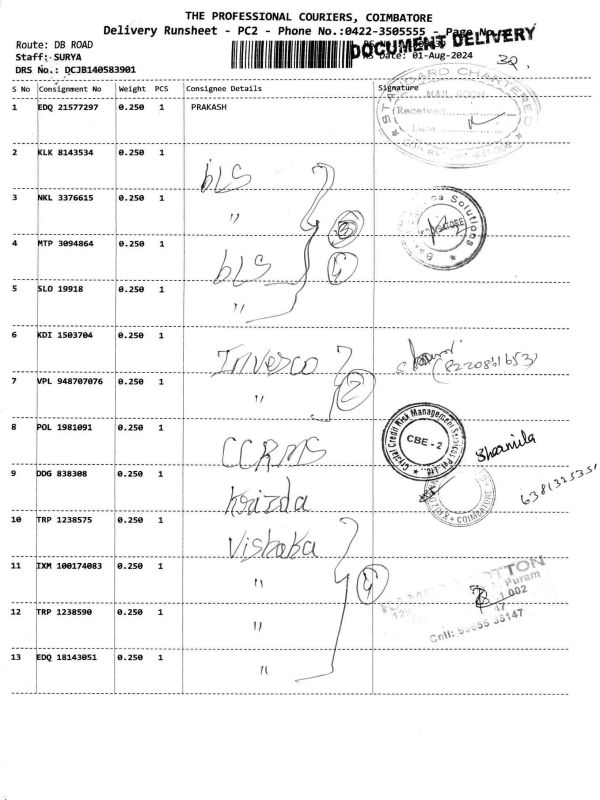 THE PROFESSIONAL COURIERS, COIMBATORE
Delivery Runsheet - PC2 - Phone No.:0422-3505555 - Page No
DOCUMENT DELIVERY
Route: DB ROAD
Staff: SURYA
Date: 01-Aug-2024
DRS No.: DCJB140583901
S No Consignment No Weight PCS Consignee Details Signature
1 EDQ 21577297 0.250 1 PRAKASH
STANDARD CHARTERED
MAIL ROOM
Received
Date
2 KLK 8143534 0.250 1 bLS
3 NKL 3376615 0.250 1 "
Solutions
4 MTP 3094864 0.250 1 bLS 4
5 SLO 19918 0.250 1 "
6 KDI 1503704 0.250 1 Invesco
7 VPL 948707076 0.250 1 " 2
8 POL 1981091 0.250 1 CCRMS
Crystal Credit Risk Management Services Pvt. Ltd.,
CBE - 2
Sharmila
9 DDG 838308 0.250 1 krizda
6381325351
COIMBATORE
10 TRP 1238575 0.250 1 Viskaka
11 IXM 100174083 0.250 1 " 4
COTTON
Puram
12 TRP 1238590 0.250 1 "
Cell:
13 EDQ 18143051 0.250 1 "